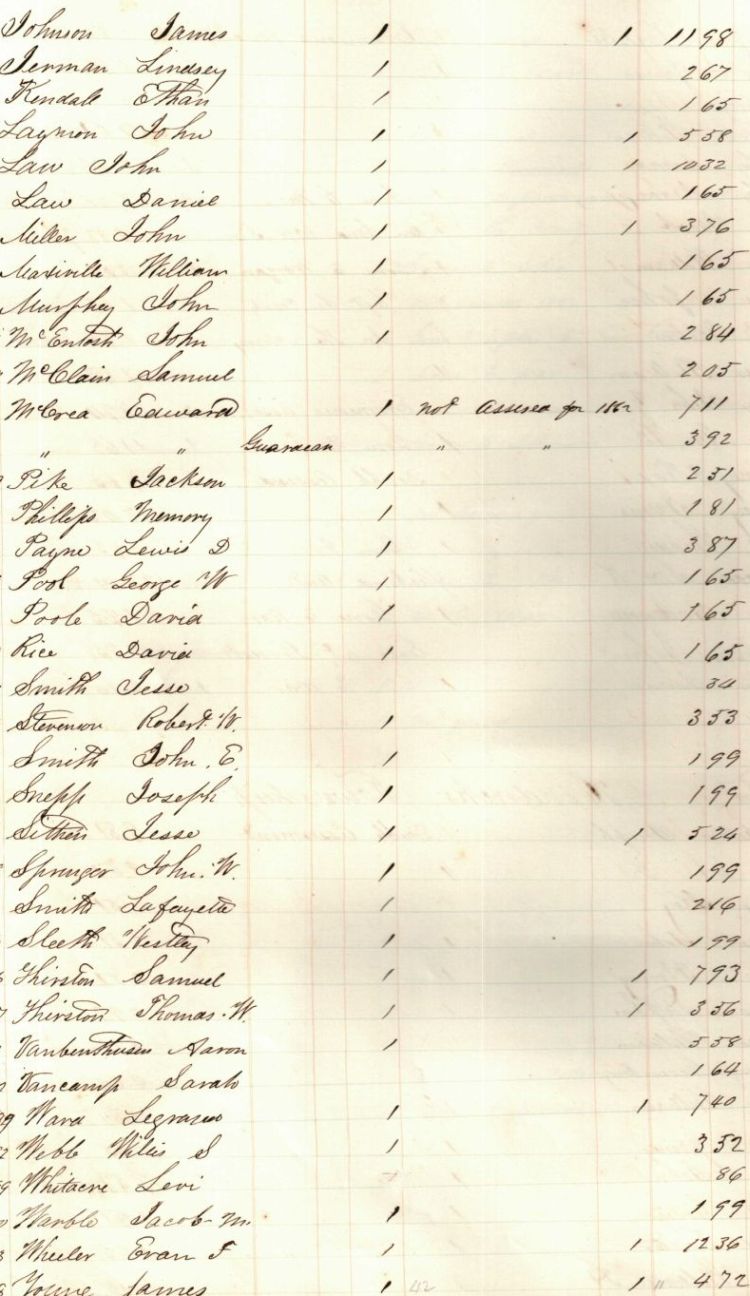 Johnson James 1 1 1198
Jerman Lindsey 1 267
Kendall Ethan 1 165
Laymon John 1 1 558
Law John 1 1 1032
Law Daniel 1 165
Miller John 1 1 376
Maxiville William 1 165
Murphey John 1 165
McEntosh John 1 284
McClain Samuel 205
McCrea Edward 1 not Assesed for 1862 711
" " Guardean " " 392
Pike Jackson 1 251
Phillips Memory 1 181
Payne Lewis D 1 387
Pool George W 1 165
Poole David 1 165
Rice David 1 165
Smith Jesse 34
Stevenson Robert W. 1 353
Smith John. E. 1 199
Snepp Joseph 1 199
Sithen Jesse 1 1 524
Sprunger John. W. 1 199
Smith Lafayette 1 216
Sleeth Westley 1 199
Thirston Samuel 1 1 793
Thirston Thomas. W. 1 1 356
Vanbenthusen Aaron 1 558
Vancamp Sarah 164
Ward 1 1 740
Webb Willis S 1 352
Whitacre Levi 86
Warble Jacob M. 1 199
Wheeler Evan F 1 1 1236
Young James 1 42 1 " 472